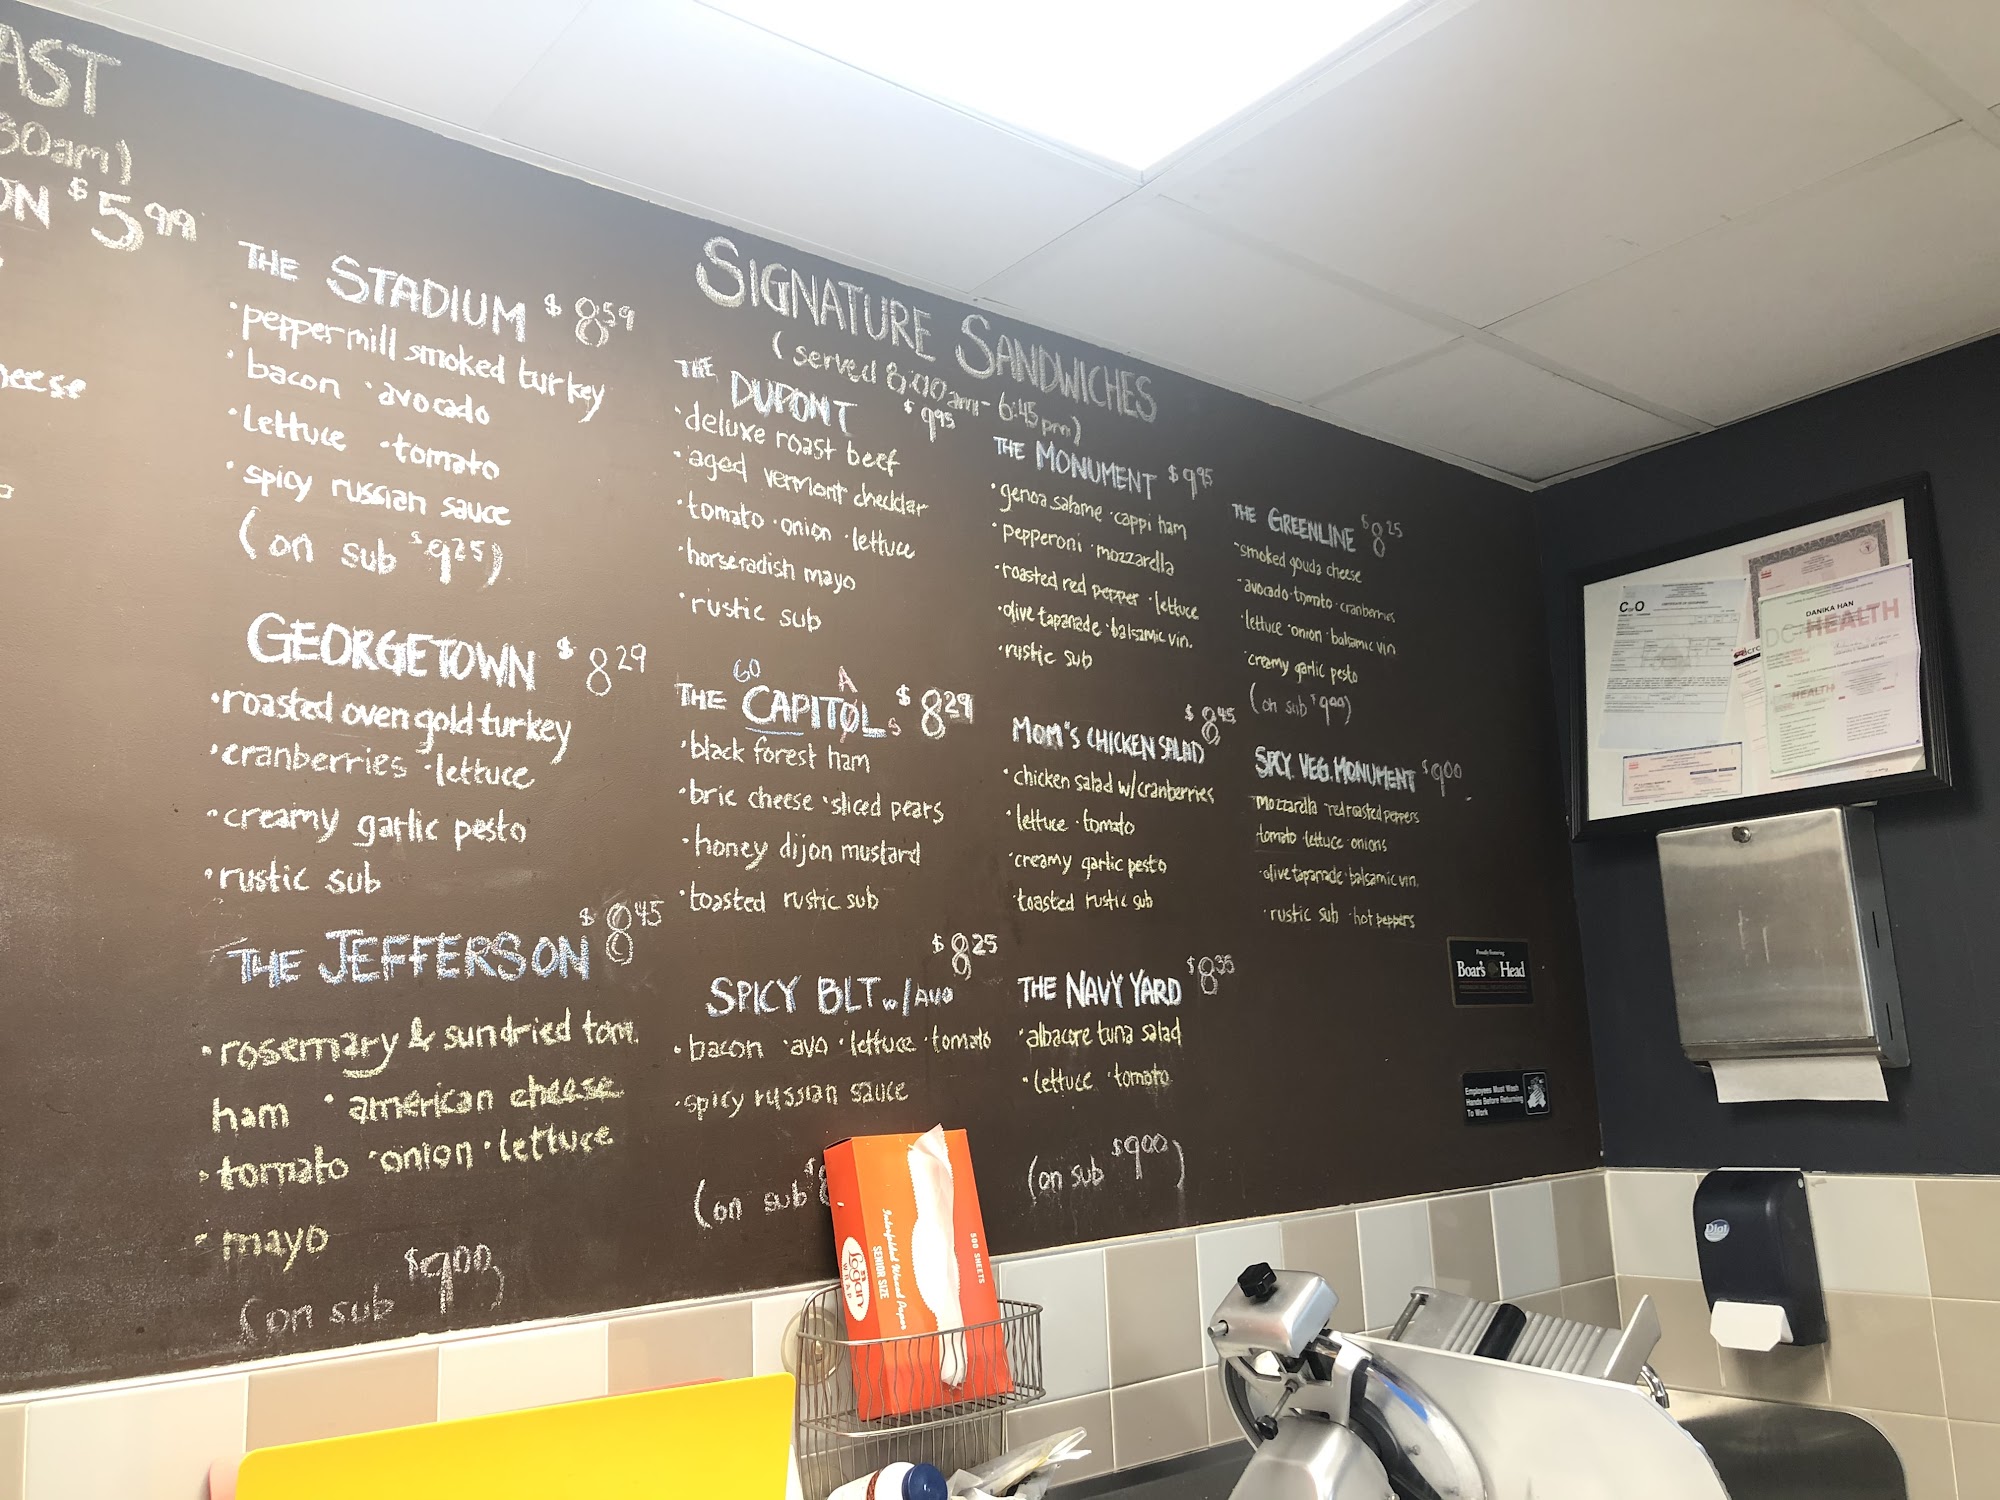 AST
30am)
ON $5.99
heese
THE STADIUM $8.59
• peppermill smoked turkey
• bacon • avocado
• lettuce • tomato
• spicy russian sauce
(on sub $9.25)
GEORGETOWN $8.29
• roasted oven gold turkey
• cranberries • lettuce
• creamy garlic pesto
• rustic sub
THE JEFFERSON $8.45
• rosemary & sundried tom.
ham • american cheese
• tomato • onion • lettuce
• mayo
(on sub $9.00)
SIGNATURE SANDWICHES
(served 8:00am - 6:45pm)
THE DUPONT $9.95
• deluxe roast beef
• aged vermont cheddar
• tomato • onion • lettuce
• horseradish mayo
• rustic sub
GO A
THE CAPITOLS $8.29
• black forest ham
• brie cheese • sliced pears
• honey dijon mustard
• toasted rustic sub
SPICY BLT w/AVO $8.25
• bacon • avo • lettuce • tomato
• spicy russian sauce
(on sub $8
THE MONUMENT $9.95
• genoa salame • cappi ham
• pepperoni • mozzarella
• roasted red pepper • lettuce
• olive tapanade • balsamic vin.
• rustic sub
MOM'S CHICKEN SALAD $8.45
• chicken salad w/cranberries
• lettuce • tomato
• creamy garlic pesto
toasted rustic sub
THE NAVY YARD $8.35
• albacore tuna salad
• lettuce • tomato
(on sub $9.00)
THE GREENLINE $8.25
• smoked gouda cheese
• avocado • tomato • cranberries
• lettuce • onion • balsamic vin
• creamy garlic pesto
(on sub $9.00)
SPCY. VEG. MONUMENT $9.00
mozzarella • red roasted peppers
tomato • lettuce • onions
• olive tapanade • balsamic vin.
• rustic sub • hot peppers
Proudly Featuring
Boar's Head
Employees Must Wash
Hands Before Returning
To Work
C of O
CERTIFICATE OF OCCUPANCY
DANIKA HAN
DC HEALTH
HEALTH
Dial
Logan
WRAP
Interfolded Waxed Paper
SENIOR SIZE
500 SHEETS